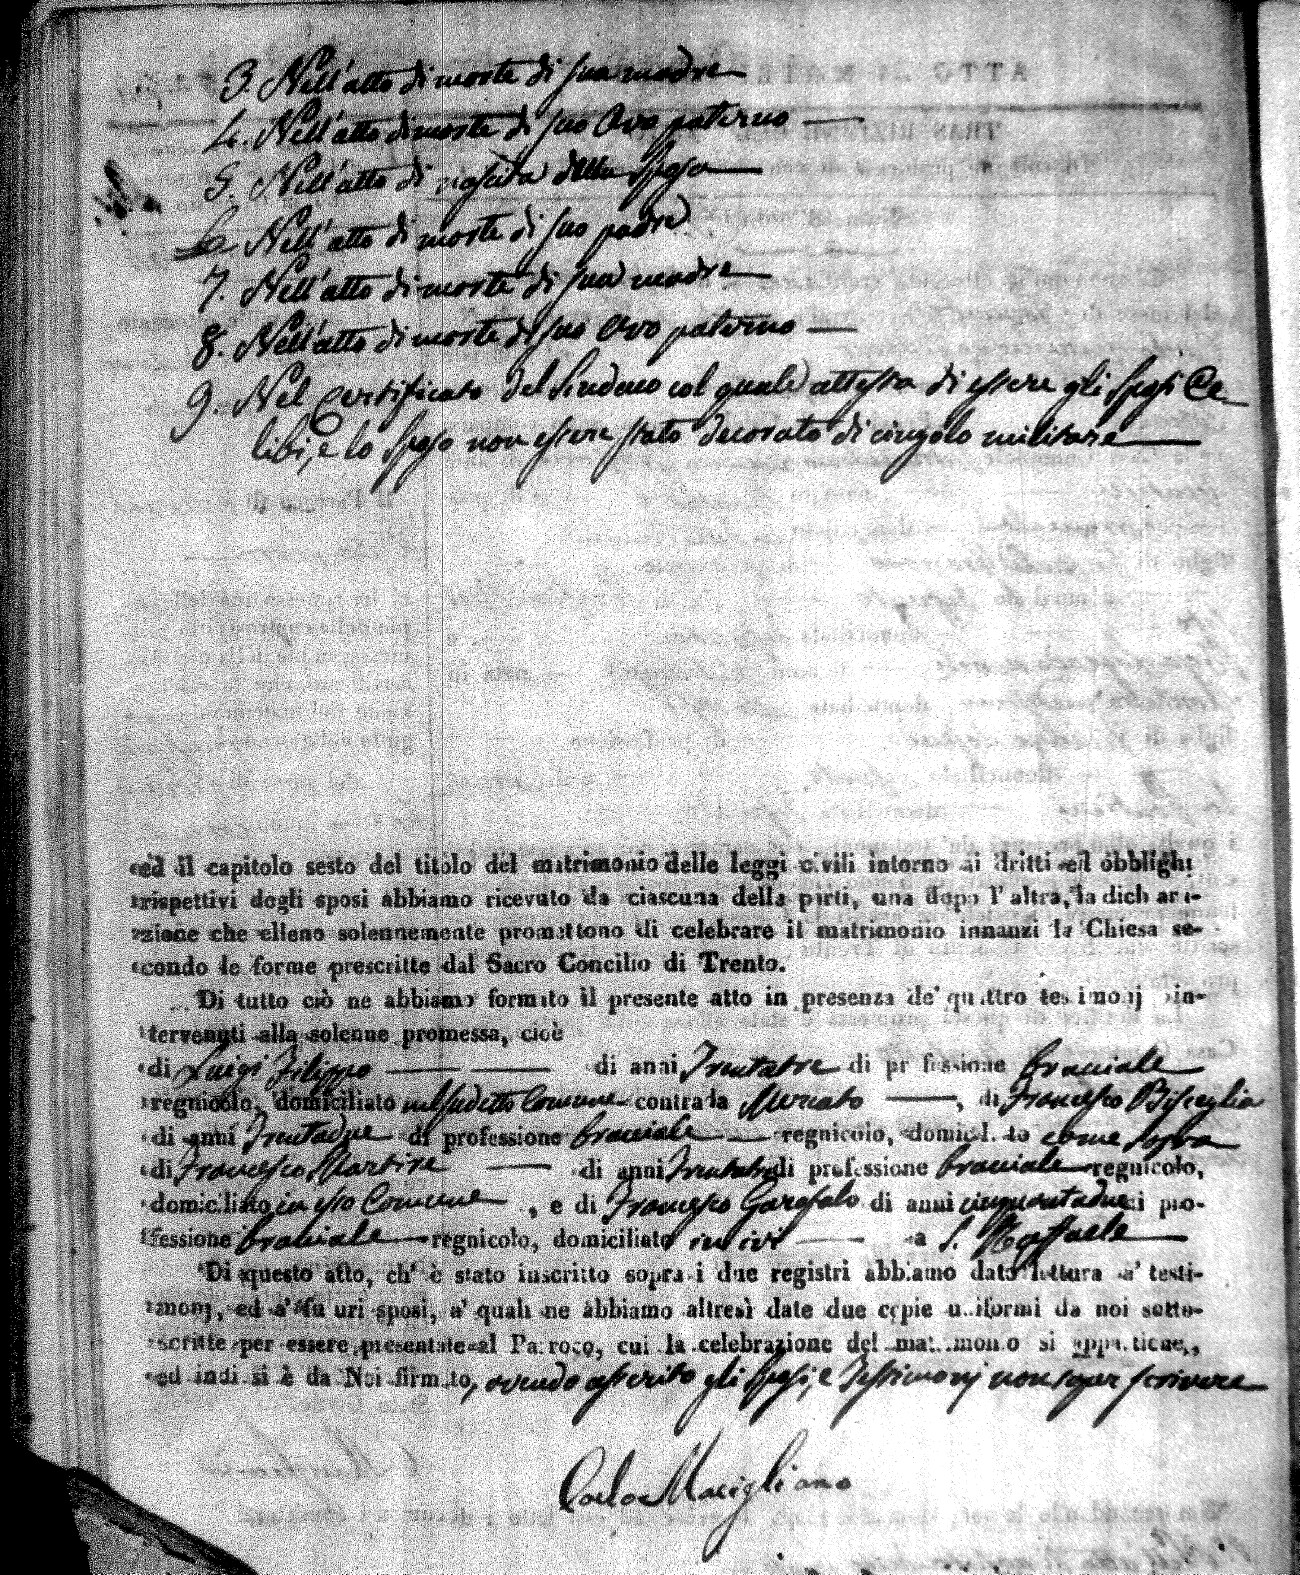 3. Nell'atto di morte di sua madre
4. Nell'atto di morte di suo Avo paterno
5. Nell'atto di nascita della sposa
6. Nell'atto di morte di suo padre
7. Nell'atto di morte di sua madre
8. Nell'atto di morte di suo Avo paterno
9. Nel Certificato del Sindaco col quale attesta di essere gli sposi Ce-
libi, e lo sposo non essere stato decorato di cingolo militare
ed il capitolo sesto del titolo del matrimonio delle leggi civili intorno ai dritti ed obblighi
rispettivi degli sposi abbiamo ricevuto da ciascuna della parti, una dopo l'altra, la dichara-
zione che elleno solennemente promettono di celebrare il matrimonio innanzi la Chiesa se-
condo le forme prescritte dal Sacro Concilio di Trento.
Di tutto ciò ne abbiamo formato il presente atto in presenza de' quattro testimonj in-
tervenuti alla solenne promessa, cioè
di Luigi Filippo di anni Trentatre di professione bracciale
regnicolo, domiciliato nel sudetto Comune contrada Mercato, di Francesco Bisceglia
di anni Trentadue di professione bracciale regnicolo, domiciliato come sopra
di Francesco Martire di anni di professione bracciale regnicolo,
domiciliato in esso Comune, e di Francesco Garofalo di anni cinquantadue di pro-
fessione bracciale regnicolo, domiciliato ivi a S. Raffaele
Di questo atto, ch' è stato inscritto sopra i due registri abbiamo dato lettura a' testi-
monj, ed a' futuri sposi, a' quali ne abbiamo altresì date due copie uniformi da noi sotto-
scritte per essere presentate al Parroco, cui la celebrazione del matrimonio si appartiene,
ed indi si è da Noi firmato, avendo asserito gli sposi, e Testimonj non saper scrivere
Carlo Macigliano